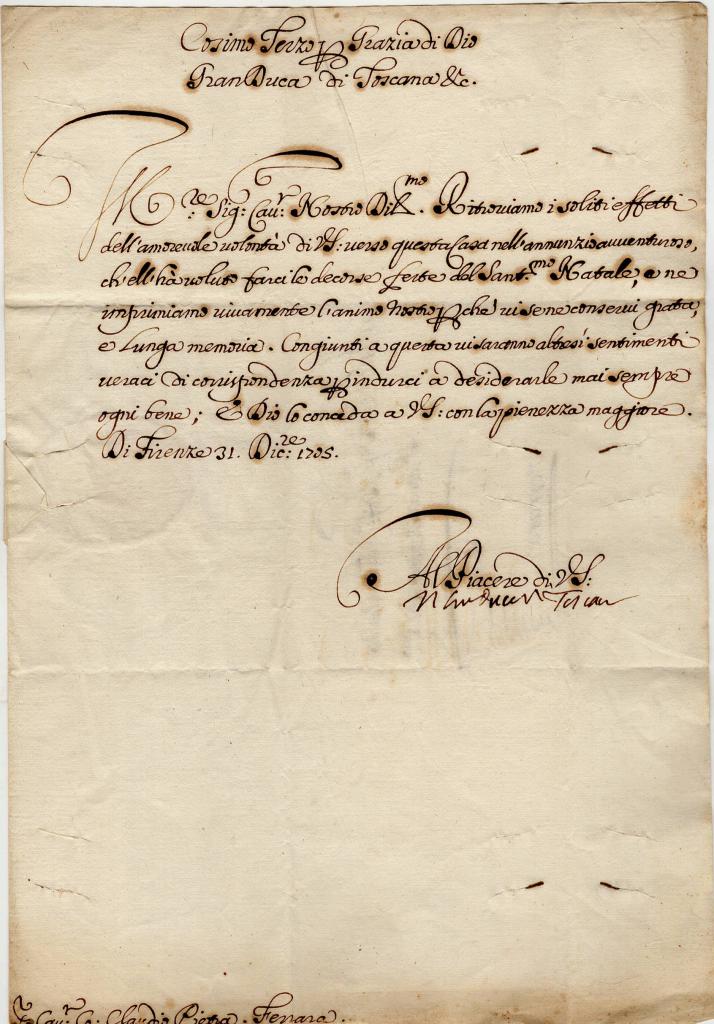 Cosimo Terzo p Grazia di Dio
Gran Duca di Toscana &c.
Sig: Cau.r Nostro Dil.mo. Ritroviamo i soliti effetti
dell'amorevole volontà di VS: verso questa Casa nell'annunzio avventuroso,
ch'ell'hà voluto farci le decorse feste del Sant.mo Natale, e ne
imprimiamo vivamente l'animo nostro p che vi se ne conservi grata,
e lunga memoria. Congiunti a questa vi saranno altresì sentimenti
veraci di corrispondenza p indurci a desiderarle mai sempre
ogni bene; E Dio lo conceda a VS: con la pienezza maggiore.
Di Firenze 31. Dic.re 1705.
Al Piacere di VS:
Il Gran Duca di Toscana
Cau.r Co: Claudio Pietra. Ferrara.